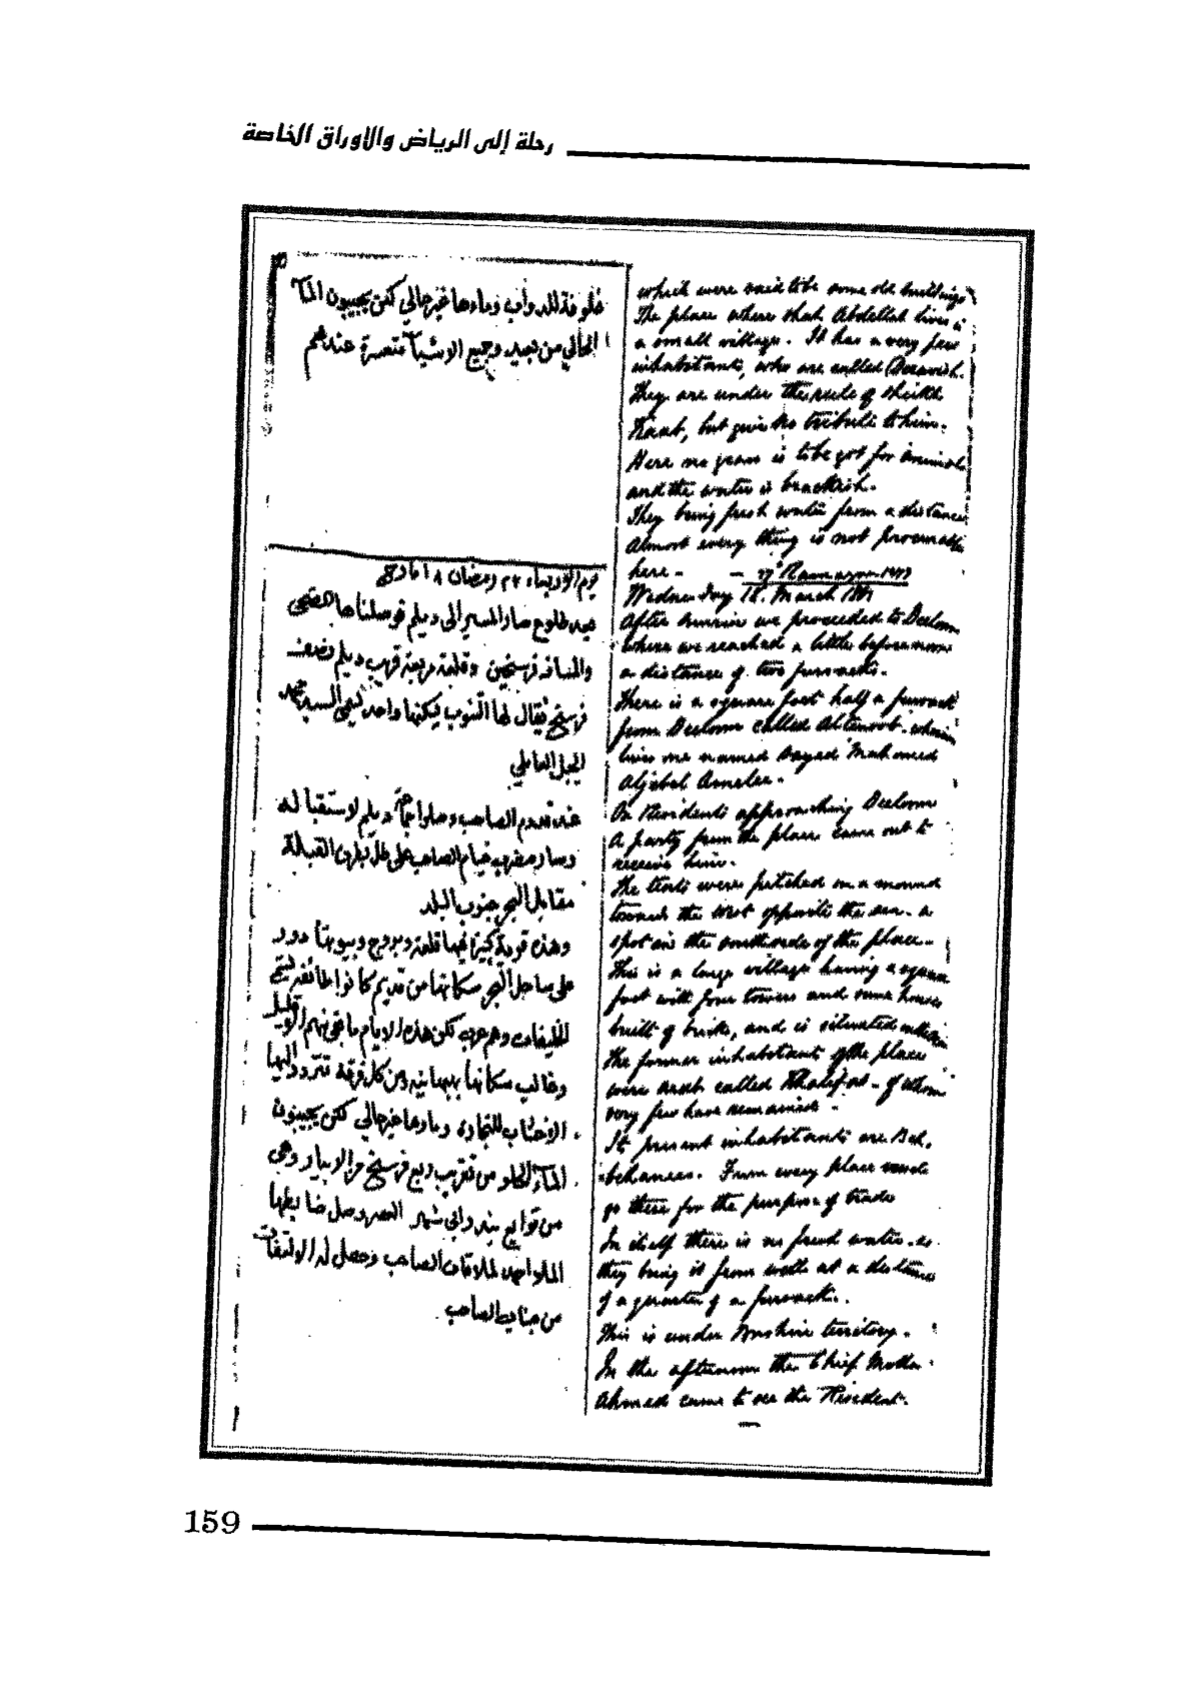 رحلة إلى الرياض والأوراق الخاصة
للدواب وماءها غير حالي لكن يجيبون الماء
الحالي من بعيد وجميع الاشياء متعسرة عندهم
يوم الاربعاء ٢٢ رمضان
بعد طلوع صار المسير الى ديلم فوصلناها
والمسافة فرسخين وقلعة مربعة قريب ديلم نصف
فرسخ يقال لها يسكنها واحد السيد محمد
الجبل العاملي
عند قدوم الصاحب وصلوا ديلم لاستقباله
وصار مضرب خيام الصاحب على تل بطرف القبالة
مقابل البحر جنوب البلد
وهذه قرية كبيرة فيها قلعة وبروج وبيوتها
على ساحل البحر سكانها من قديم كانوا طائفة
الخليفات وهم عرب لكن هذه الايام ما بقي منهم الا قليل
وغالب سكانها بهبهانيه ومن كل فرقة تتردد اليها
للتجارة وماءها غير حالي لكن يجيبون
الماء الحلو من تقريب ربع فرسخ من الابيار وهي
من توابع بندر ابي شهر العصر وصل ضابطها
الملا احمد لملاقات الصاحب وحصل له الالتفات
من جناب الصاحب
which were said to be some old buildings
The place where shah Abdullah lives is
a small village. It has a very few
inhabitants, who are called
They are under the rule of sheikh
but give no tribute to him.
Here no grass is to be got for animals
and the water is brackish.
They bring fresh water from a distance
Almost every thing is not procurable
here - — Ramazan
Wednesday March
After sunrise we proceeded to Deelom
where we reached a little before noon
a distance of two fursacks.
There is a square fort half a fursack
from Deelom called wherein
lives one named Sayed Mahomed
Aljebel Amelee.
On Residents approaching Deelom
A party from the place came out to
receive him.
The tents were pitched on a mound
towards the West opposite the sea - a
spot on the south side of the place.
This is a large village having a square
fort with four towers and some houses
built of bricks, and is situated
The former inhabitants of the place
were Arab called Khalifat - of whom
very few have remained.
It present inhabitants are Beh-
behanees. From every place
go there for the purpose of trade
In itself there is no fresh water
they bring it from wells at a distance
of a quarter of a fursack.
This is under Bushire territory.
In the afternoon the Chief Molla
Ahmed came to see the Resident.
159